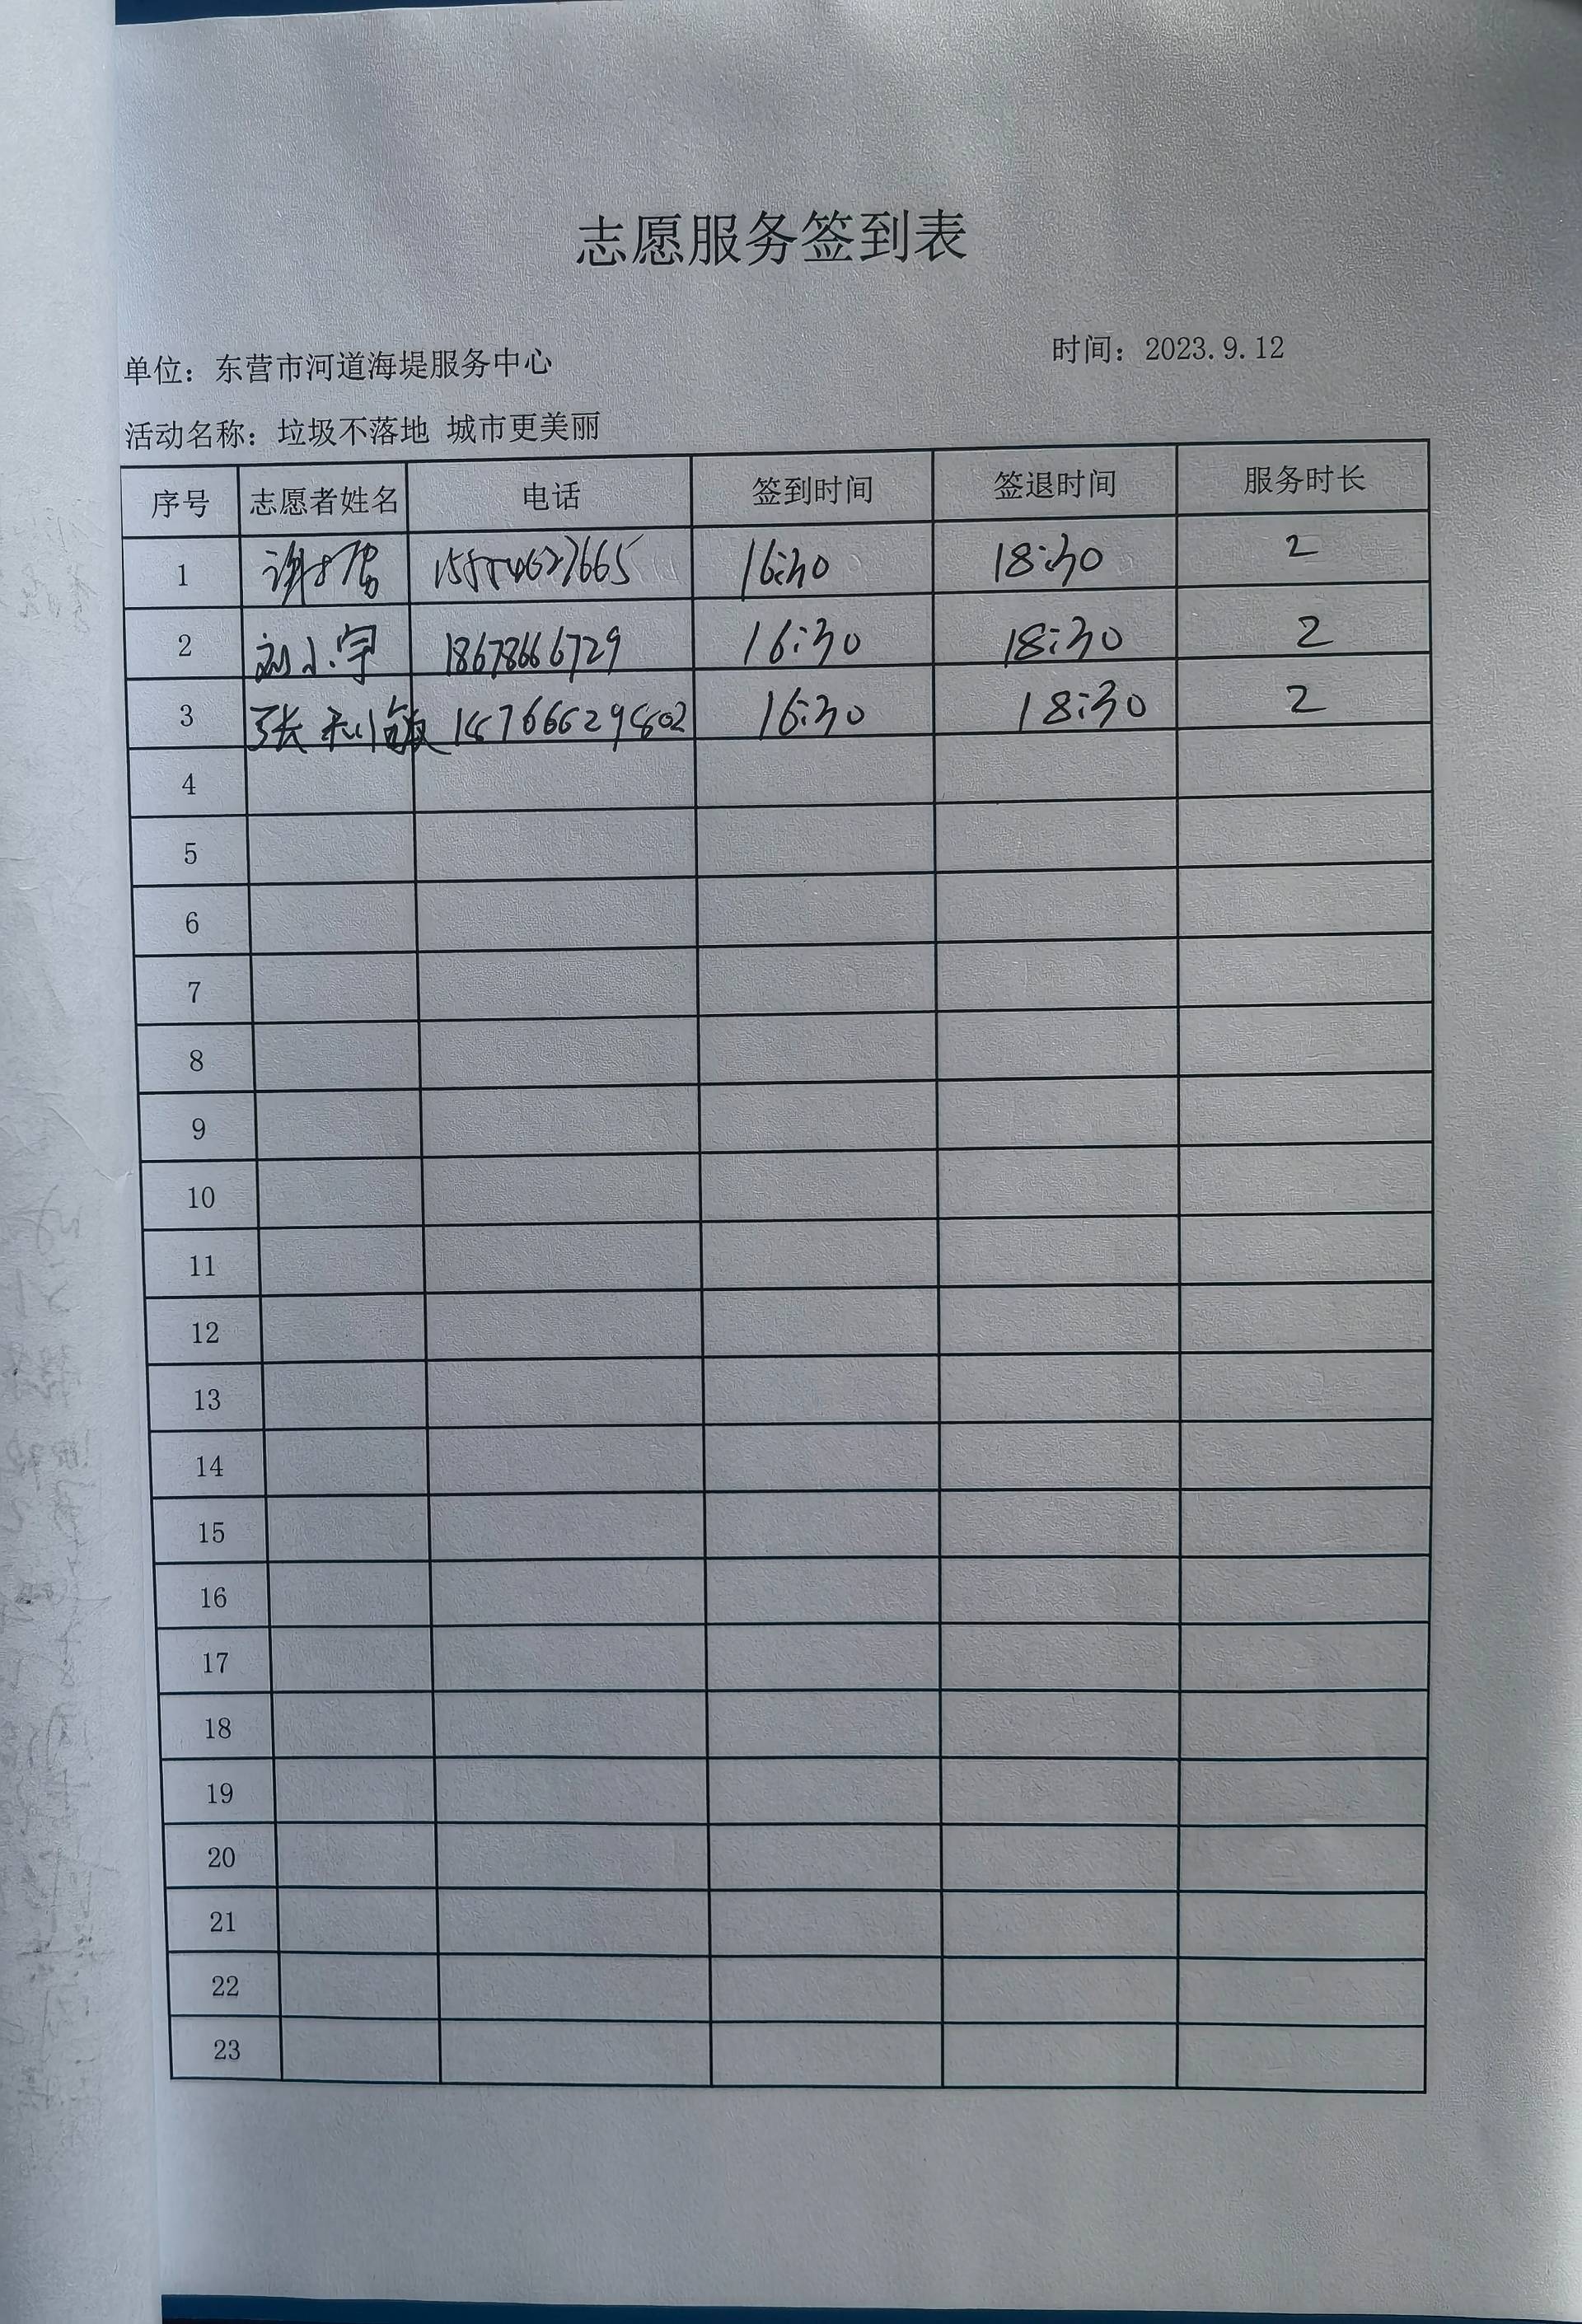 志愿服务签到表
单位：东营市河道海堤服务中心 时间：2023.9.12
活动名称：垃圾不落地 城市更美丽
序号 志愿者姓名 电话 签到时间 签退时间 服务时长
1 16:30 18:30 2
2 刘小宇 18678666729 16:30 18:30 2
3 张利敏 16:30 18:30 2
4
5
6
7
8
9
10
11
12
13
14
15
16
17
18
19
20
21
22
23